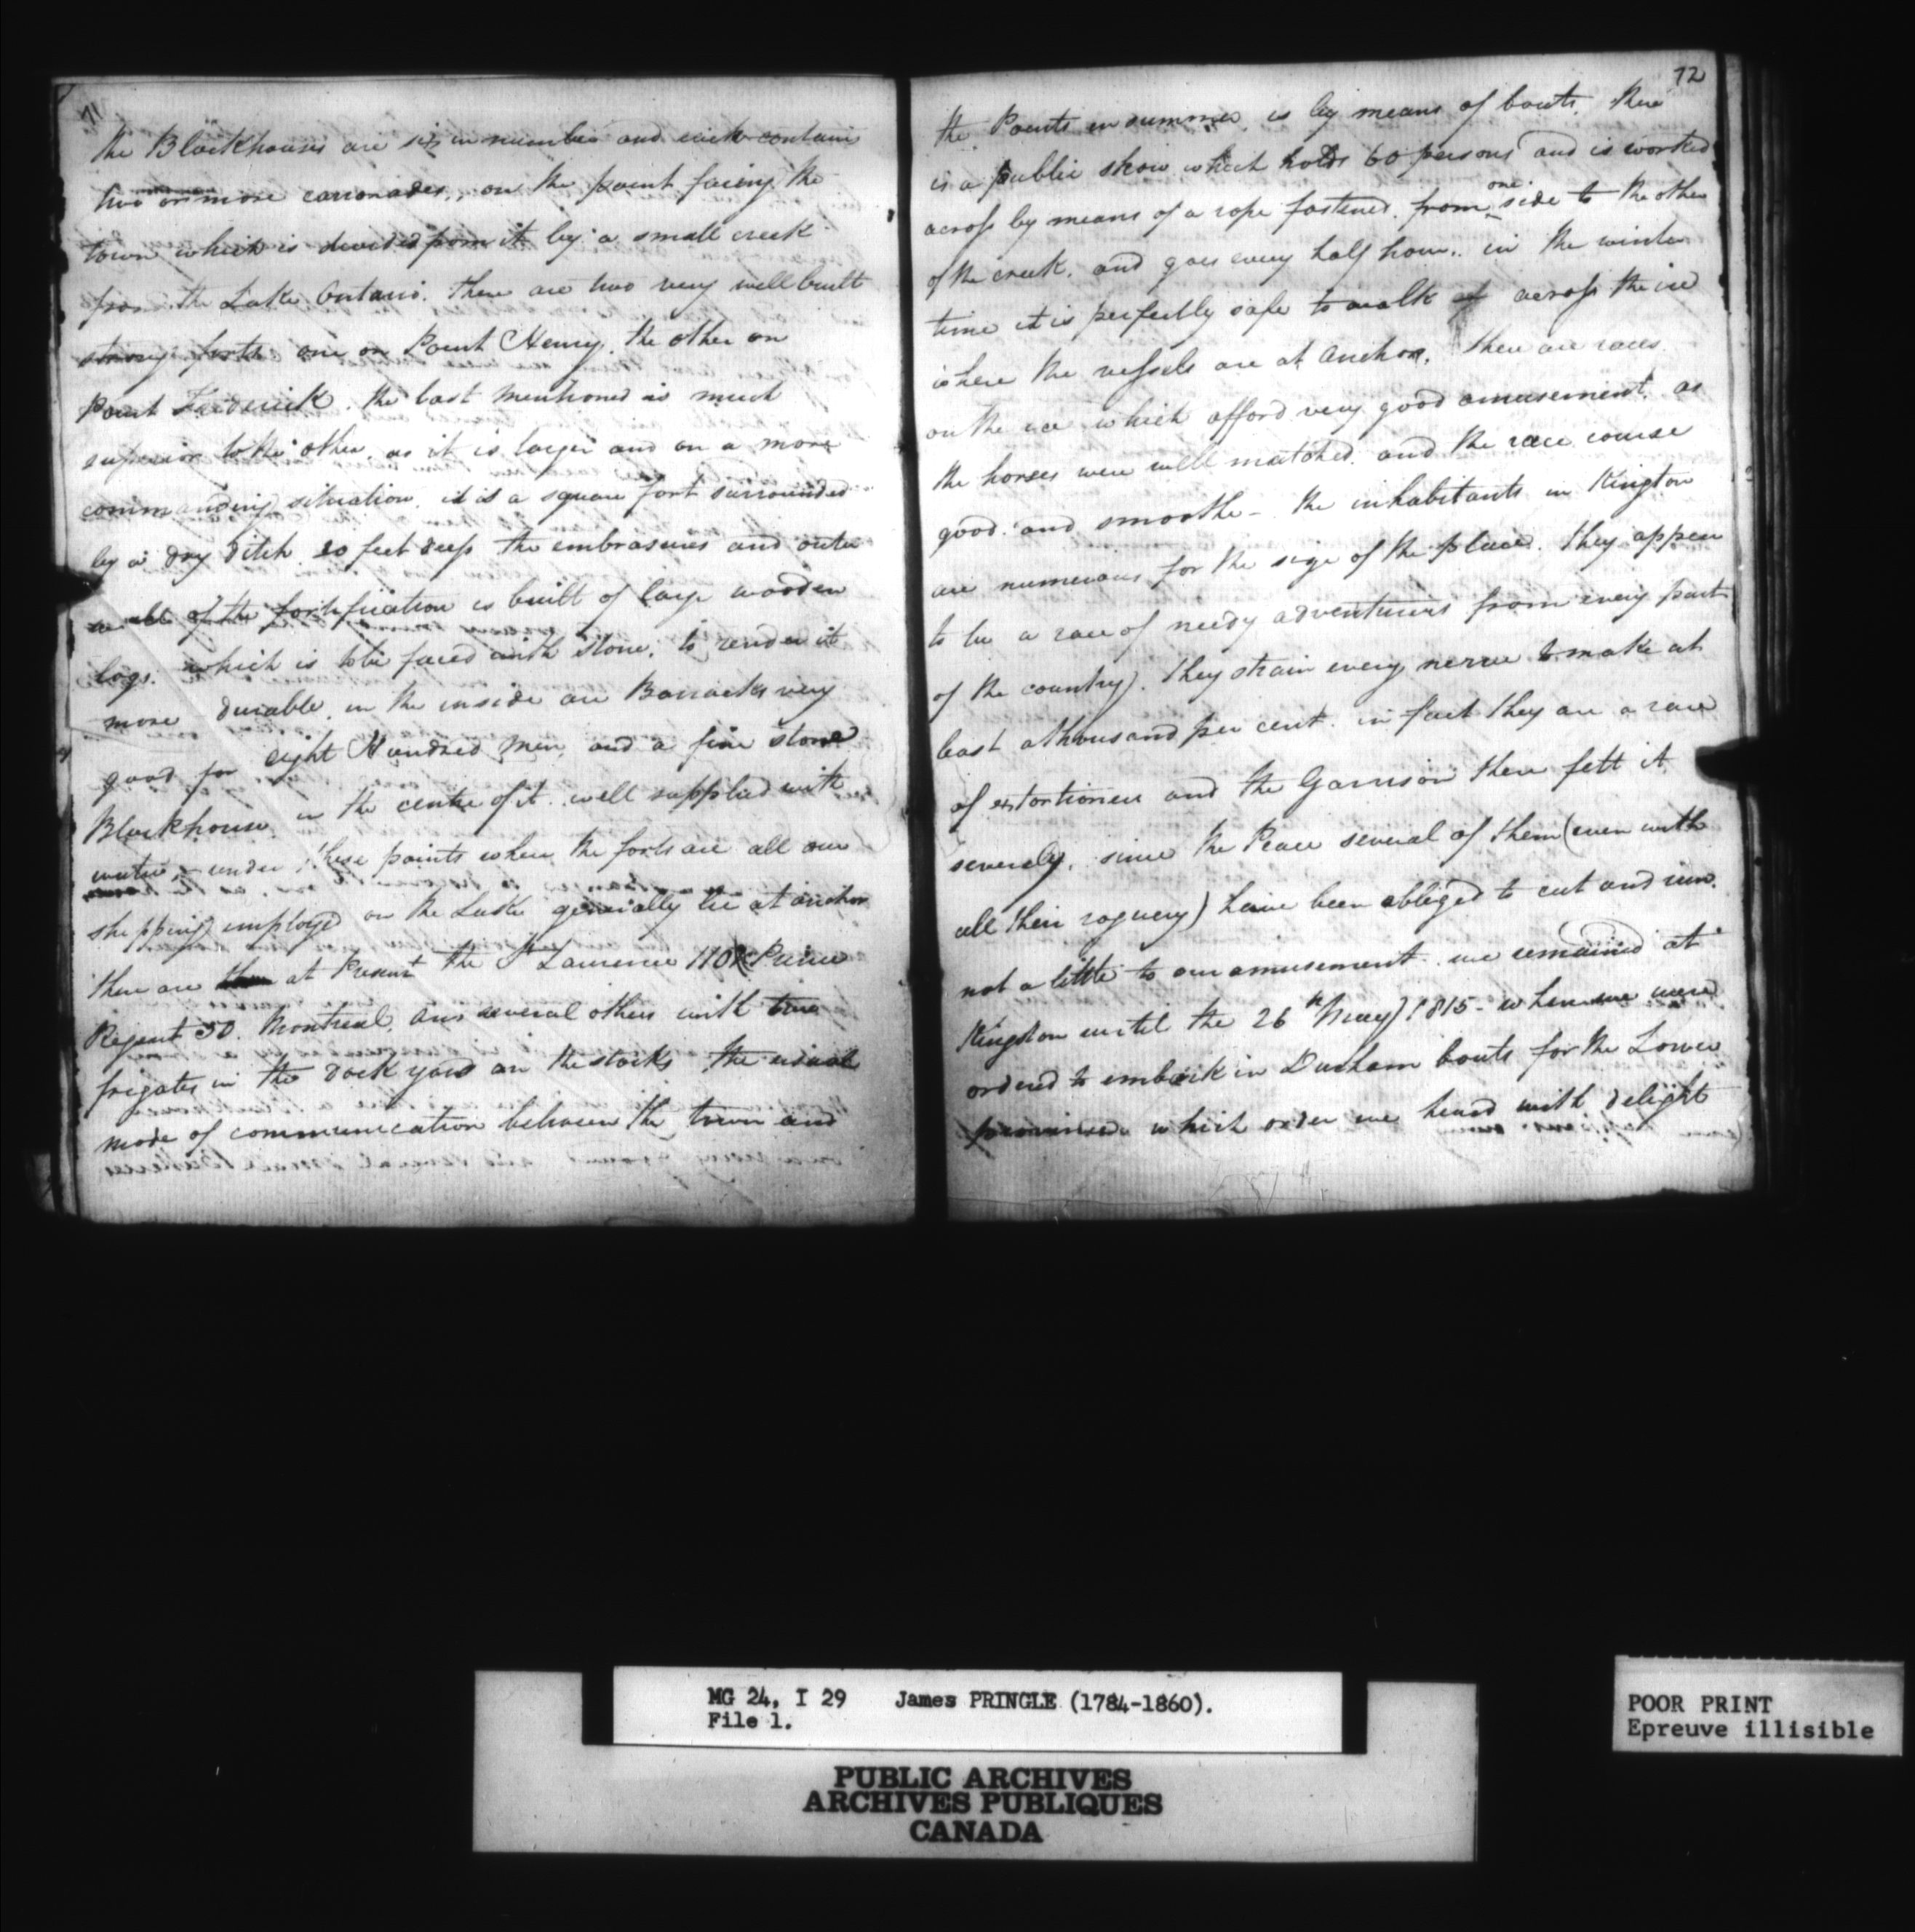 71
the Blockhouses are six in number and each contain
two or more carronades, on the point facing the
town which is divided from it by a small creek
from the Lake Ontario. there are two very well built
strong forts one on Point Henry, the other on
Point Frederick. the last mentioned is much
superior to the other, as it is larger and on a more
commanding situation. it is a square fort surrounded
by a dry ditch 20 feet deep the embrasures and outer
wall of the fortification is built of large wooden
logs. which is to be faced with stone, to render it
more durable. in the inside are Barracks very
good for eight Hundred men, and a fine stone
Blockhouse, in the centre of it. well supplied with
water, - under these points where the forts are all our
shipping employed on the Lake generally lie at anchor
there are at Present the St Lawrence 110 Prince
Regent 50. Montreal, and several others with two
frigates in the Dock yard on the stocks. The usual
mode of communication between the town and
72
the Points in summer is by means of boats. there
is a public skow which holds 60 persons and is worked
across by means of a rope fastened from one side to the other
of the creek. and goes every half hour. in the winter
time it is perfectly safe to walk across the ice
where the vessels are at anchor. There are races
on the ice which afford very good amusement. as
the horses were well matched. and the race course
good and smoothe - the inhabitants in Kington
are numerous for the size of the place. They appear
to be a race of needy adventurers from every part
of the country). They strain every nerve to make at
least a thousand per cent. in fact they are a race
of extortioners and the Garrison there felt it
severely. since the Peace several of them (even with
all their roguery) have been obliged to cut and run.
not a little to our amusement. we remained at
Kingston until the 26th May 1815 - when we were
ordered to embark in Durham boats for the Lower
province which order we heard with delight
MG 24, I 29 James PRINGLE (1784-1860).
File 1.
PUBLIC ARCHIVES
ARCHIVES PUBLIQUES
CANADA
POOR PRINT
Epreuve illisible